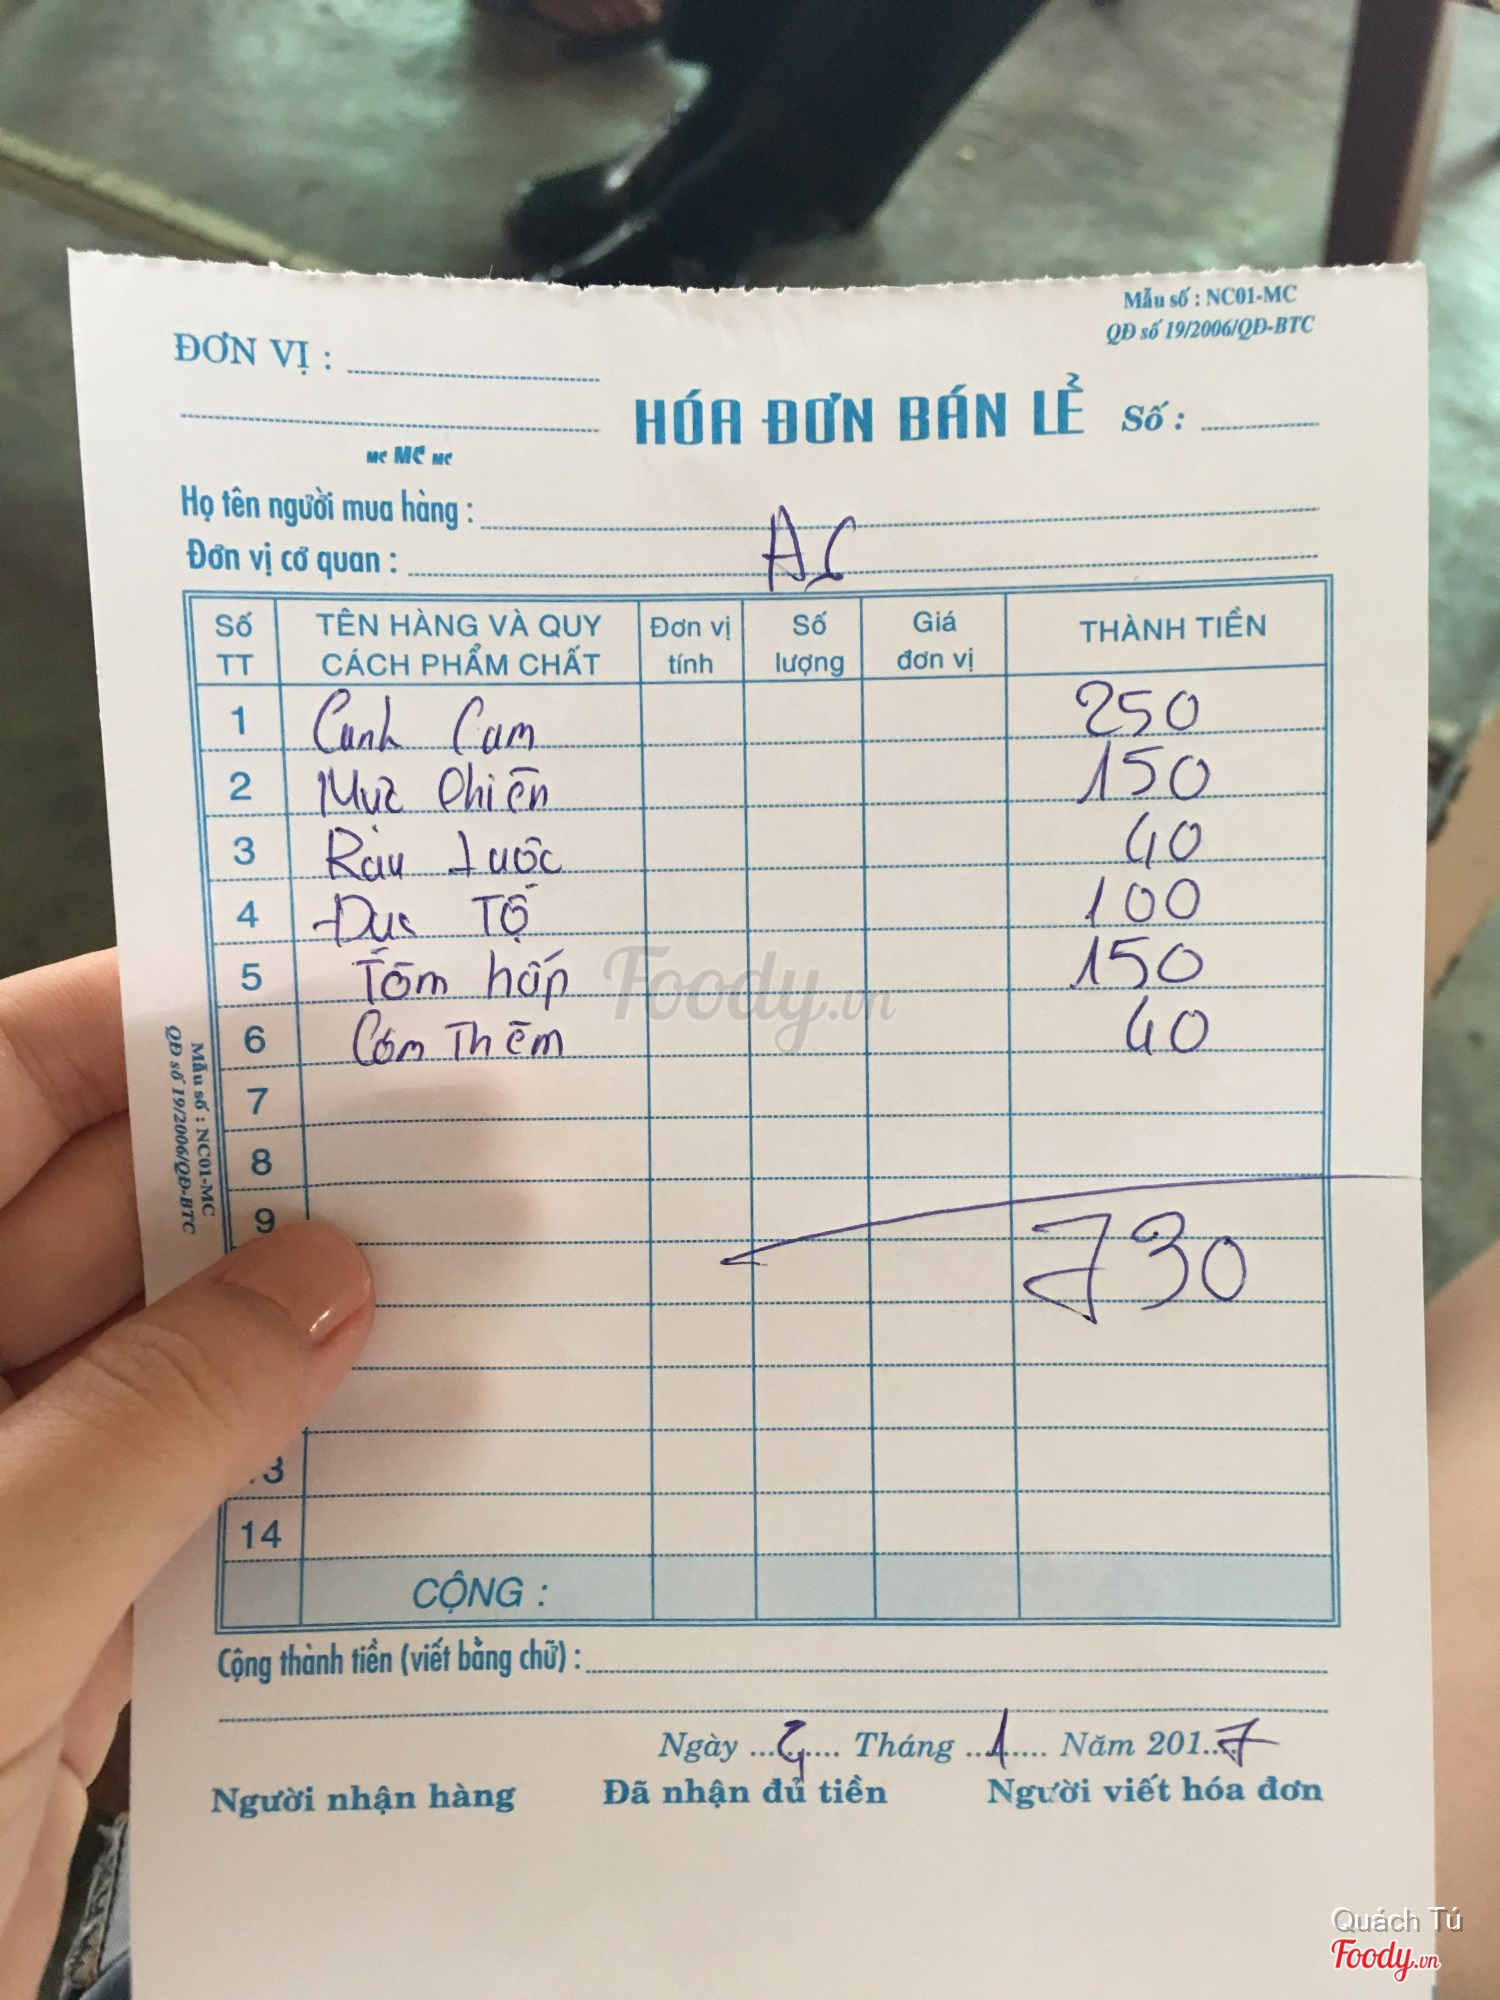 Mẫu số : NC01-MC
QĐ số 19/2006/QĐ-BTC
ĐƠN VỊ :
HÓA ĐƠN BÁN LẺ Số :
MC MC MC
Họ tên người mua hàng :
Đơn vị cơ quan :
Số TT TÊN HÀNG VÀ QUY CÁCH PHẨM CHẤT Đơn vị tính Số lượng Giá đơn vị THÀNH TIỀN
1 Canh Cam 250
2 Mực Chiên 150
3 Rau luộc 40
4 Đục Tộ 100
5 Tôm hấp 150
6 Cơm Thêm 40
7
8
9
730
14
CỘNG :
Cộng thành tiền (viết bằng chữ) :
Ngày ........ Tháng ...1..... Năm 201..7
Người nhận hàng Đã nhận đủ tiền Người viết hóa đơn
Mẫu số : NC01-MC
QĐ số 19/2006/QĐ-BTC
Foody.vn
Quách Tú
Foody.vn